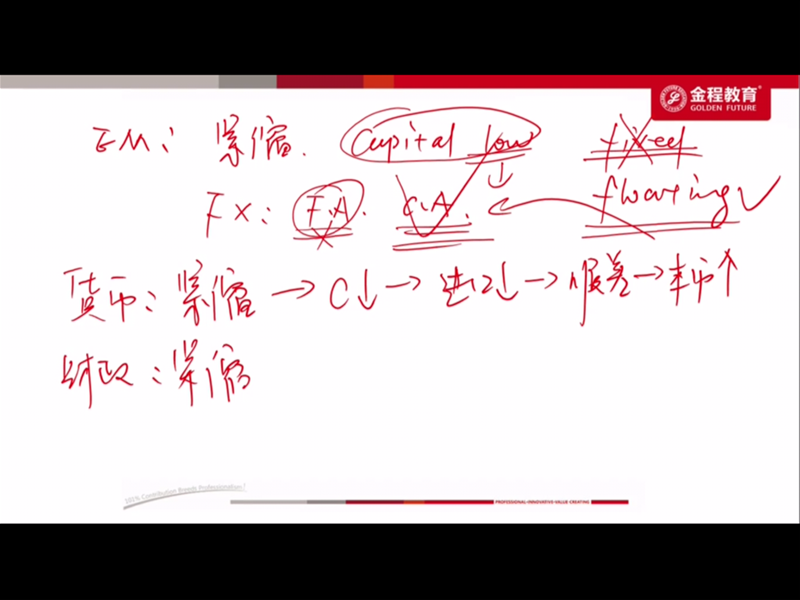 金程教育
GOLDEN FUTURE
EM: 紧缩. Capital low fixed
FX: F.A. C.A. ← floating ✓
货币: 紧缩 → C↓ → 进口↓ → 顺差 → 本币↑
财政: 紧缩
101% Contribution Breeds Professionalism
PROFESSIONAL·INNOVATIVE·VALUE CREATING